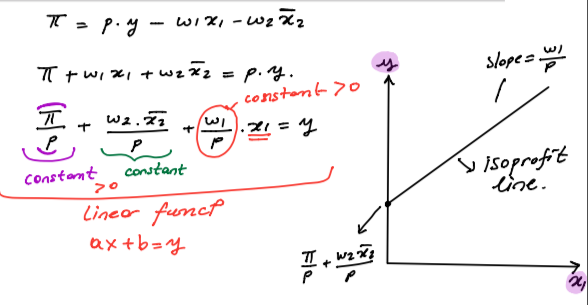 π = p.y − w1x1 − w2x̄2
π + w1x1 + w2x̄2 = p.y.
constant > 0
π/p + w2.x̄2/p + w1/p . x1 = y
constant
constant
>0
linear funct
ax+b=y
y
slope = w1/p
isoprofit
line.
π/p + w2x̄2/p
x1